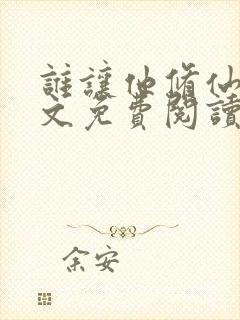 誰讓他修仙
文免費閱讀
余安